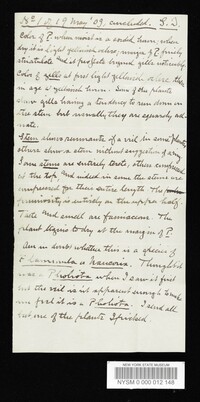 No 1 2 19 May '09, concluded. S. D.
Color of P. when moist is a reddish brown, when
dry it is light yellowish ochre, margin of P. finely
striatulate and it projects beyond gills noticeably.
Color of gills at first light yellowish ochre, then
in age a yellowish brown. Some of the plants
show gills having a tendency to run down on
the stem but usually they are squarely ad-
nate.
Stem shows remnants of a veil, in some plants,
others show a stem without suggestion of any.
Some stems are entirely terete, others compressed
at the top and indeed in some the stems are
compressed for their entire length. The
pruinosity is entirely on the upper half.
Taste and smell are farinaceous. The
plant begins to dry at the margin of P.
Am in doubt whether this is a species of
Flammula or Naucoria. Thought it
was a Pholiota when I saw it first
but the veil is it apparent enough to make
me feel it is a Pholiota. I send all
but one of the plants I picked.
NEW YORK STATE MUSEUM
NYSM 0 000 012 148